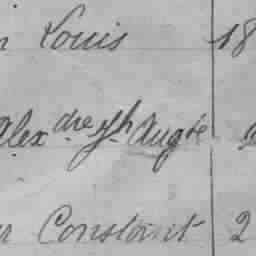 n Louis 18
Alexdre Jh Augte 2
r Constant 2